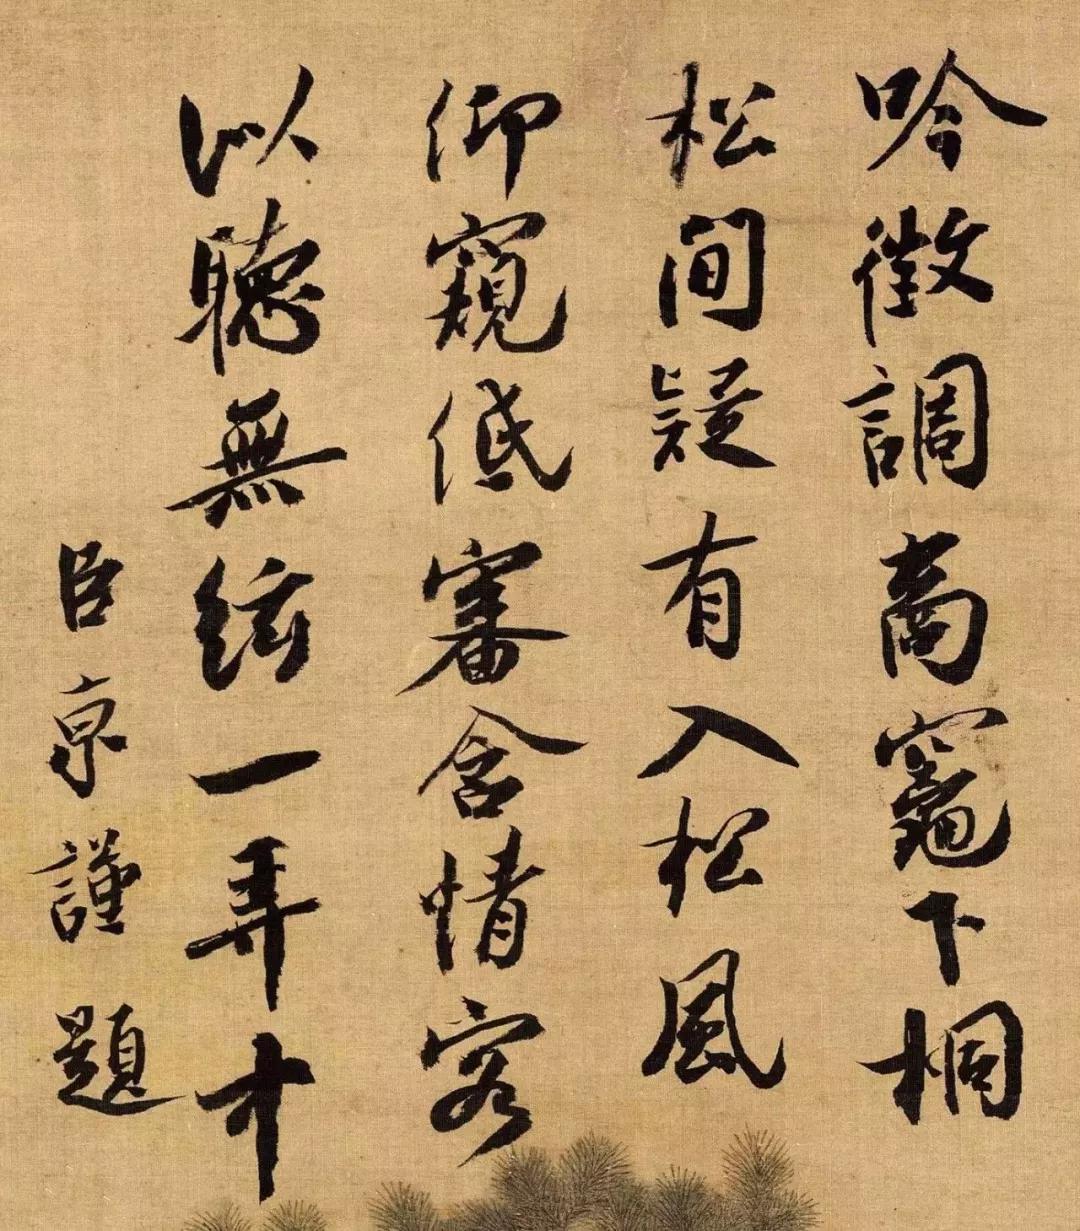 吟徵調商竈下桐
松間疑有入松風
仰窺低審含情客
以聽無絃一弄中
臣京謹題